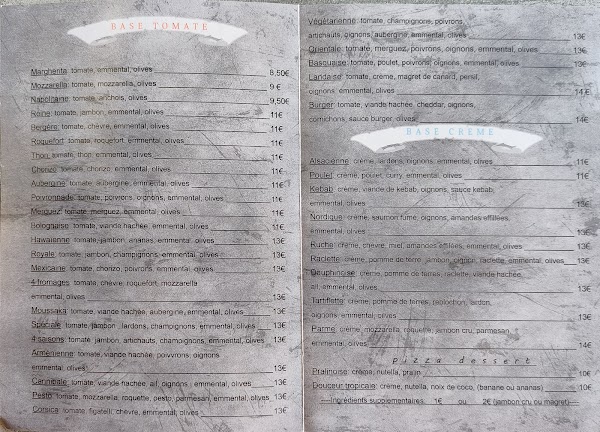 BASE TOMATE
Margherita: tomate, emmental, olives 8,50€
Mozzarella: tomate, mozzarella, olives 9 €
Napolitaine: tomate, anchois, olives 9,50€
Reine: tomate, jambon, emmental, olives 11€
Bergère: tomate, chèvre, emmental, olives 11€
Roquefort: tomate, roquefort, emmental, olives 11€
Thon: tomate, thon, emmental, olives 11€
Chorizo: tomate, chorizo, emmental, olives 11€
Aubergine: tomate, aubergine, emmental, olives 11€
Poivronnade: tomate, poivrons, oignons, emmental, olives 11€
Merguez: tomate, merguez, emmental, olives 11€
Bolognaise: tomate, viande hachée, emmental, olives 11€
Hawaïenne: tomate, jambon, ananas, emmental, olives 13€
Royale: tomate, jambon, champignons, emmental, olives 13€
Mexicaine: tomate, chorizo, poivrons, emmental, olives 13€
4 fromages: tomate, chèvre, roquefort, mozzarella
emmental, olives 13€
Moussaka: tomate, viande hachée, aubergine, emmental, olives 13€
Spéciale: tomate, jambon, lardons, champignons, emmental, olives 13€
4 saisons: tomate, jambon, artichauts, champignons, emmental, olives 13€
Arménienne: tomate, viande hachée, poivrons, oignons
emmental, olives 13€
Cannibale: tomate, viande hachée, ail, oignons, emmental, olives 13€
Pesto: tomate, mozzarella, roquette, pesto, parmesan, emmental, olives 13€
Corsica: tomate, figatelli, chèvre, emmental, olives 13€
Végétarienne: tomate, champignons, poivrons,
artichauts, oignons, aubergine, emmental, olives 13€
Orientale: tomate, merguez, poivrons, oignons, emmental, olives 13€
Basquaise: tomate, poulet, poivrons, oignons, emmental, olives 13€
Landaise: tomate, crème, magret de canard, persil,
oignons, emmental, olives 14 €
Burger: tomate, viande hachée, cheddar, oignons,
cornichons, sauce burger, olives 14€
BASE CREME
Alsacienne: crème, lardons, oignons, emmental, olives 13€
Poulet: crème, poulet, curry, emmental, olives 13€
Kebab: crème, viande de kebab, oignons, sauce kebab,
emmental, olives 13€
Nordique: crème, saumon fumé, oignons, amandes effilées,
emmental, olives 13€
Ruche: crème, chèvre, miel, amandes effilées, emmental, olives 13€
Raclette: crème, pomme de terre, jambon, oignon, raclette, emmental, olives 13€
Dauphinoise: crème, pomme de terres, raclette, viande hachée,
ail, emmental, olives 13€
Tartiflette: crème, pomme de terres, reblochon, lardon,
oignons, emmental, olives 13€
Parme: crème, mozzarella, roquette, jambon cru, parmesan,
emmental, olives 14€
pizza dessert
Pralinoise: crème, nutella, pralin 10€
Douceur tropicale: crème, nutella, noix de coco, (banane ou ananas) 10€
Ingrédients supplémentaires: 1€ ou 2€ (jambon cru ou magret)